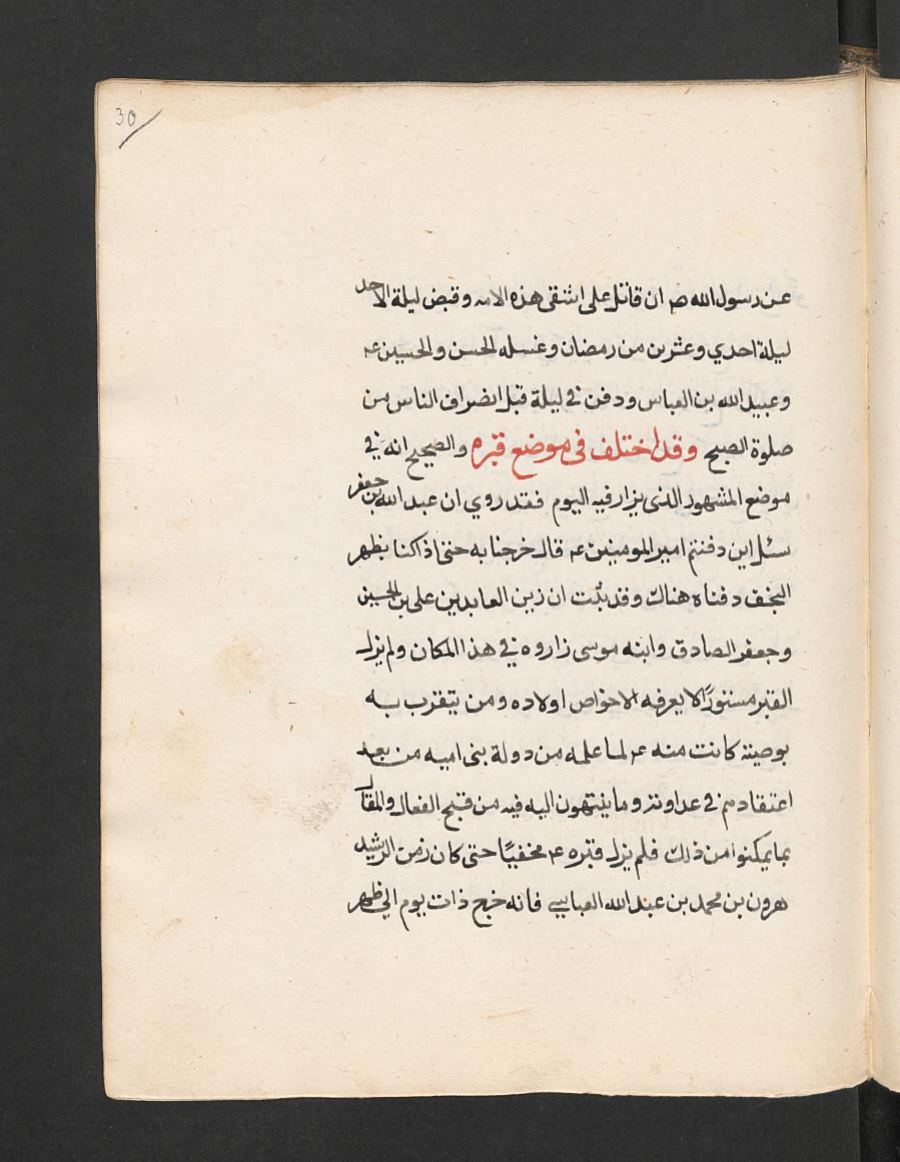 30
عن رسول الله صم ان قاتل على اشقى هذه الامه وقبض ليلة الاحد
ليلة احدي وعشرين من رمضان وغسله الحسن والحسين عم
وعبيد الله بن العباس ودفن في ليلة قبل انصراف الناس من
صلوة الصبح وقد اختلف فى موضع قبره والصحيح انه في
موضع المشهور الذى يزار فيه اليوم فقد روي ان عبد الله بن جعفر
سئل اين دفنتم امير المومنين عم قال خرجنا به حتى اذ اكنا بظهر
النجف دفناه هناك وقد ثبت ان زين العابدين على بن الحسين
وجعفر الصادق وابنه موسى زاروه في هذا المكان ولم يزل
القبر مستورًا لا يعرفه الا خواص اولاده ومن يتقرب به
بوصية كانت منه عم لما علمه من دولة بنى اميه من بعد
اعتقادهم في عداوته وما ينتهون اليه فيه من قبح الفعال والمقال
بما يمكنوا من ذلك فلم يزل قبره عم مخفيًا حتى كان زمن الرشيد
هرون بن محمد بن عبد الله العباسي فانه خرج ذات يوم الي ظهر